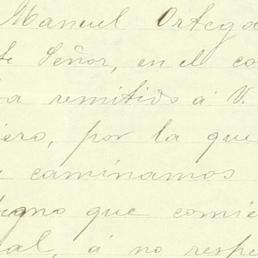 Manuel Ortega
Señor, en el co
remitido á V.
por la que
caminamos
que comie
á no respe